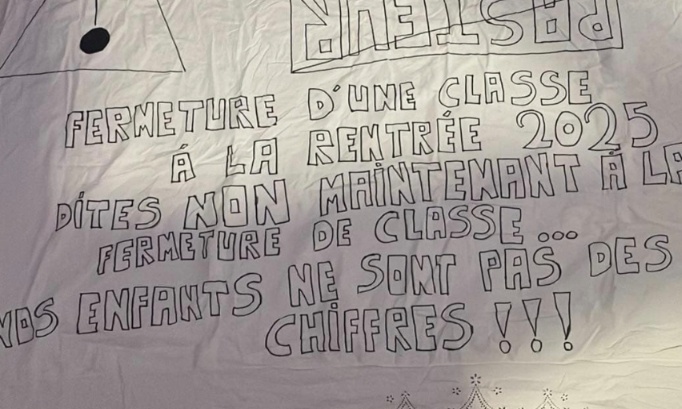 PASTEUR
FERMETURE D'UNE CLASSE
Á LA RENTRÉE 2025
DITES NON MAINTENANT À LA
FERMETURE DE CLASSE...
NOS ENFANTS NE SONT PAS DES
CHIFFRES !!!